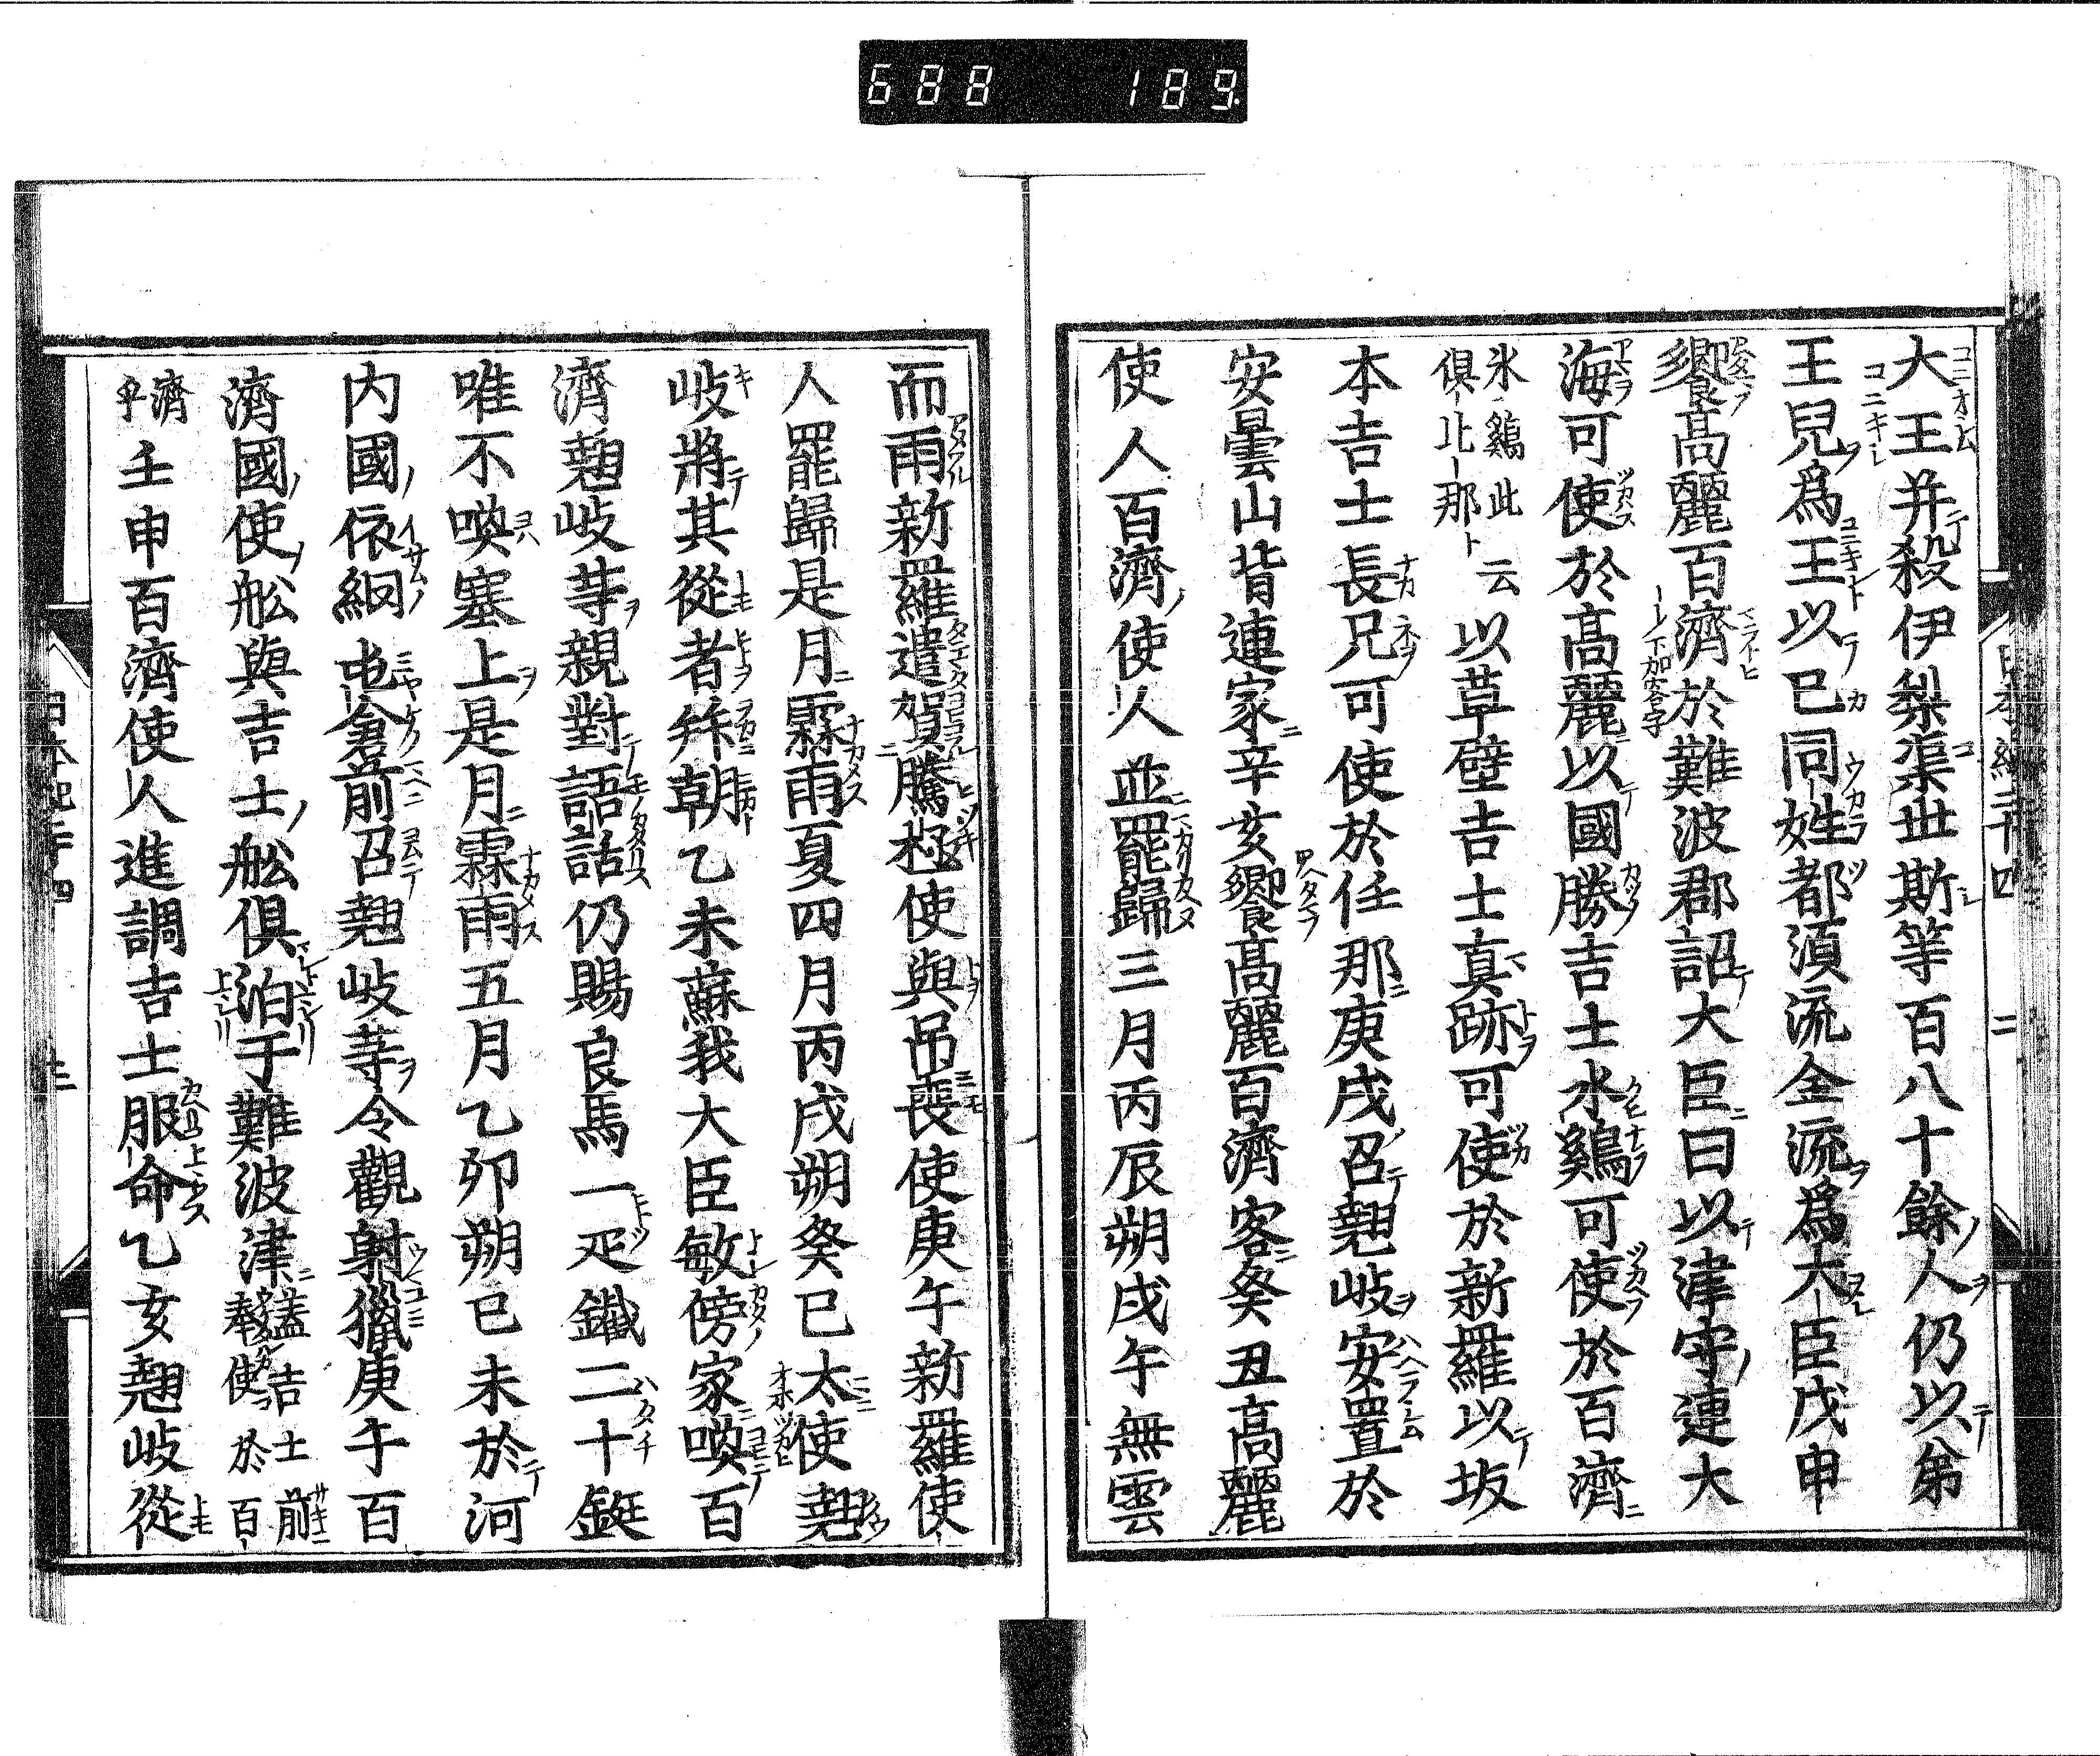 688 189
大王并殺伊梨渠世斯等百八十餘人仍以弟
王兒爲王以已同姓都湏流金流爲大臣戊申
饗高麗百濟於難波郡詔大臣曰以津守連大
海可使於高麗以國勝吉士水鷄可使於百濟
氷鷄此云
俱比那
以草壁吉士真跡可使於新羅以坂
本吉士長兄可使於任那庚戌召翹岐安置於
安曇山背連家辛亥饗高麗百濟客癸丑高麗
使人百濟使人並罷歸三月丙辰朔戊午無雲
而雨新羅遣賀騰極使與吊喪使庚午新羅使
人罷歸是月霖雨夏四月丙戌朔癸巳太使翹
岐將其從者拜朝乙未蘇我大臣敏傍家喚百
濟翹岐等親對語話仍賜良馬一疋鐵二十鋌
唯不喚塞上是月霖雨五月乙卯朔己未於河
内國依網屯倉前召翹岐等令觀射獵庚午百
濟國使舩與吉士舩俱泊于難波津
蓋吉士前
奉使於百
濟乎
壬申百濟使人進調吉士服命乙亥翹岐從